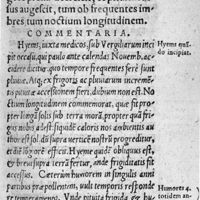 lius augescit, tum ob frequentes im
bres tum noctium longitudinem.
COMMENTARIA.
Hyems, iuxta medicos, sub Vergiliarum inci
pit occasũ, qui paulo ante calendas Nouemb. ac
cedere dicitur, quo tempore frequentes ferè sunt
pluuiæ. Atq; ex frigoris ac pluuiarum
pituita accessionem fieri, dubium non est. No
ctium longitudinem commemorat, quæ fit pro
pter longũ solis sub terra morã, propter quã fri
gus nobis
sol dũ supra verticẽ nostrũ progreditur,
efficit. Hyeme quidẽ obliquus est,
& breui supra terrã fertur, unde frigiditatis fit
accessus. Cæterùm humorem in singulis anni
partibus præpollentem, uult temporis respondẽ
re temperamento. Unde pituita frigida &
Hyems quã
do incipiat.
Humores 4.
totidem an